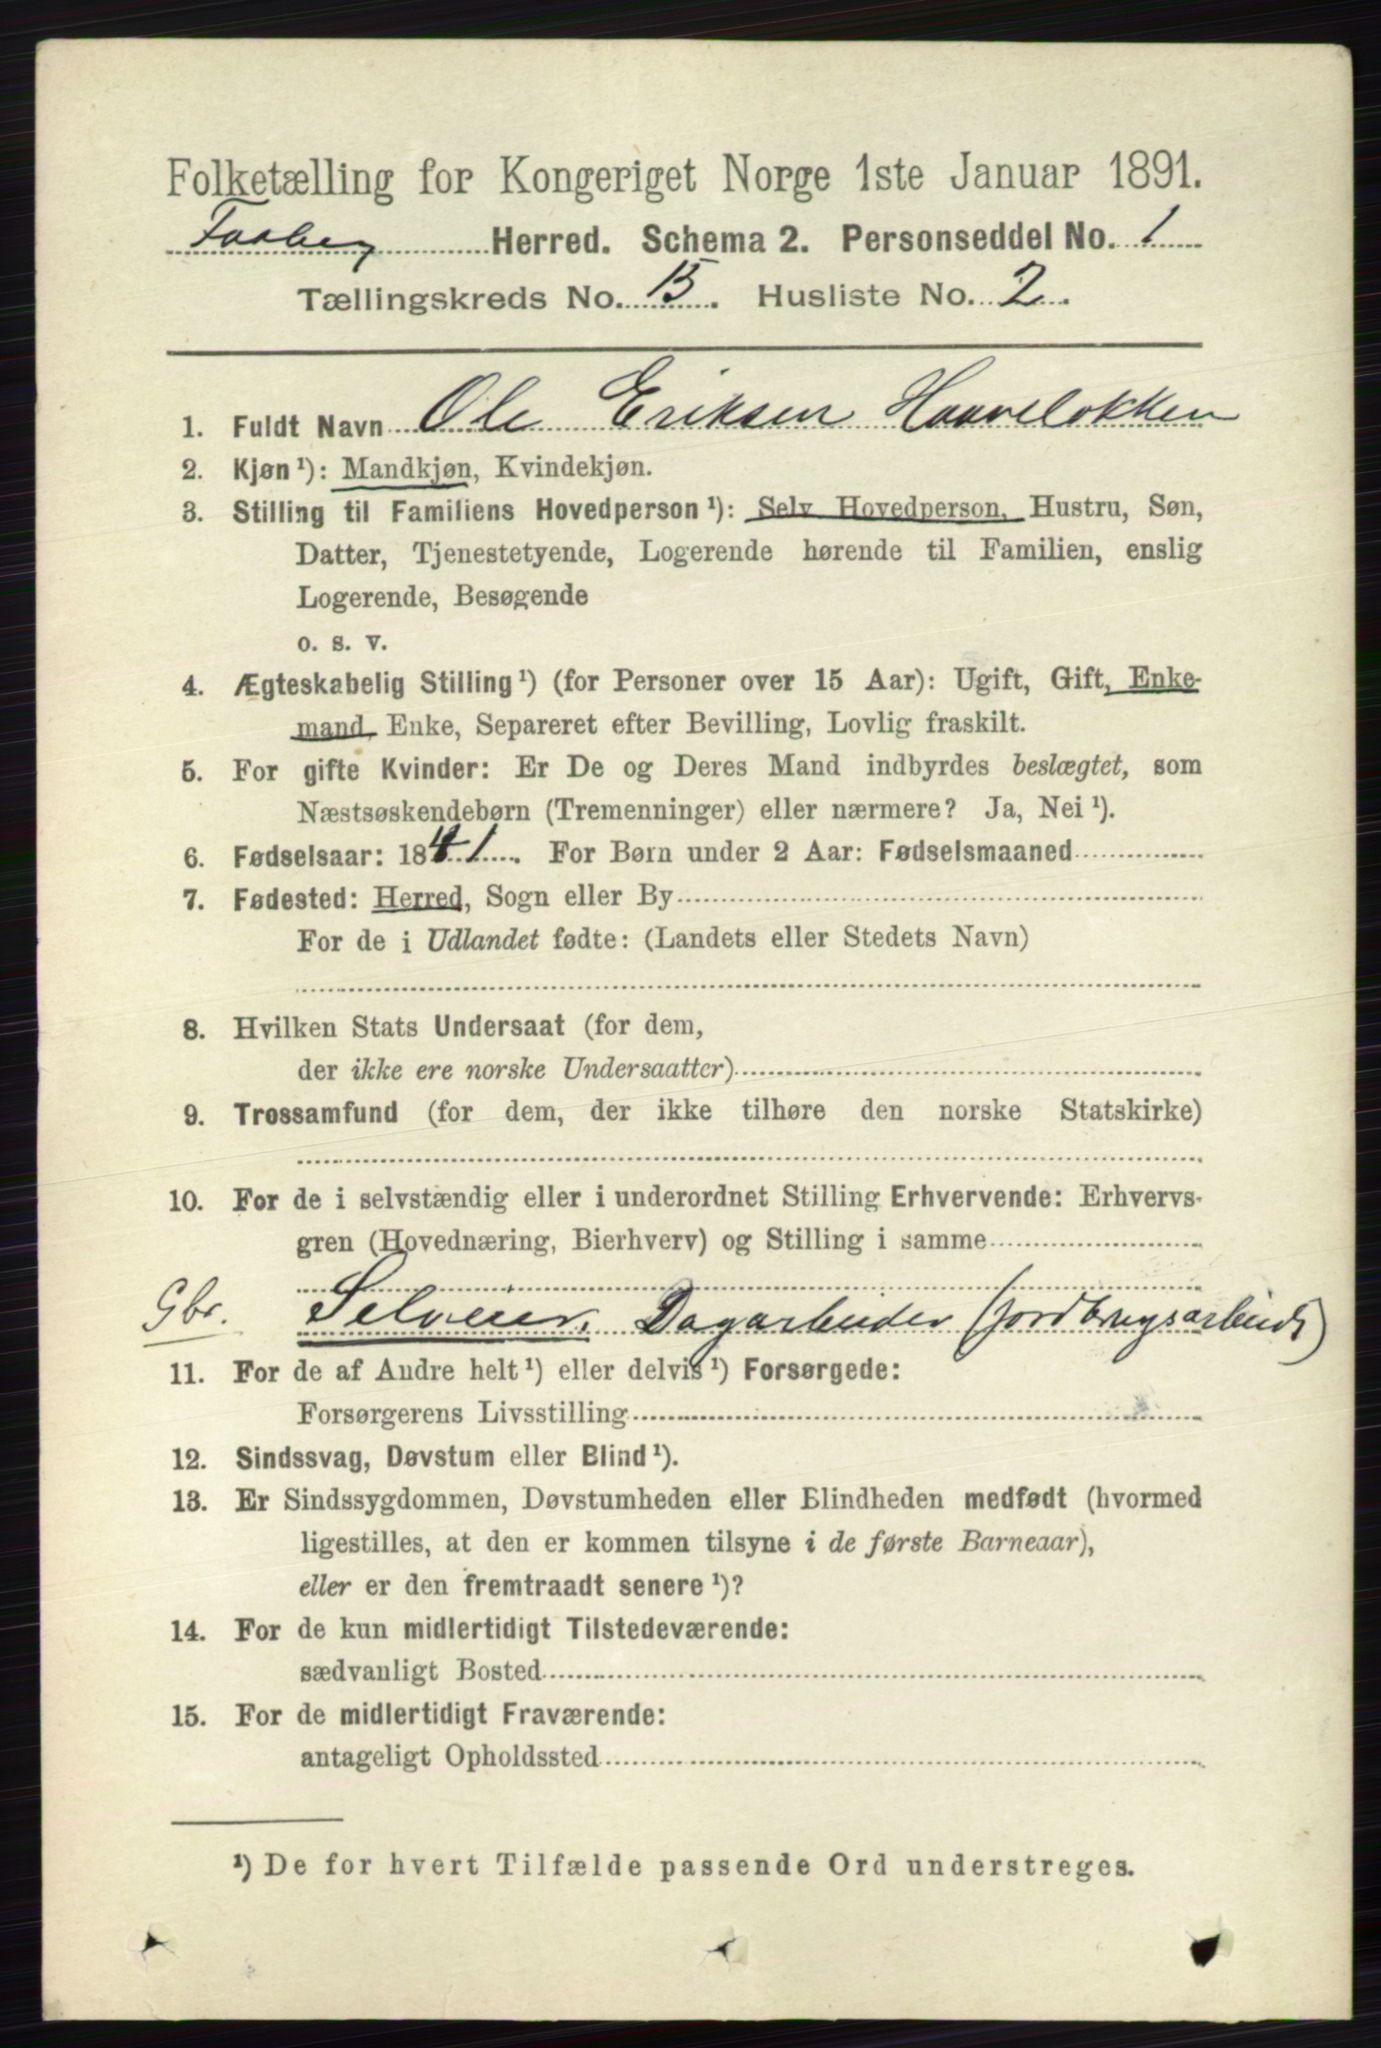 Folketælling for Kongeriget Norge 1ste Januar 1891.
Faaberg Herred. Schema 2. Personseddel No. 1
Tællingskreds No. 13. Husliste No. 2.
1. Fuldt Navn Ole Eriksen Haaveløkken
2. Kjøn¹): Mandkjøn, Kvindekjøn.
3. Stilling til Familiens Hovedperson¹): Selv Hovedperson, Hustru, Søn,
Datter, Tjenestetyende, Logerende hørende til Familien, enslig
Logerende, Besøgende
o. s. v.
4. Ægteskabelig Stilling¹) (for Personer over 15 Aar): Ugift, Gift, Enke-
mand, Enke, Separeret efter Bevilling, Lovlig fraskilt.
5. For gifte Kvinder: Er De og Deres Mand indbyrdes beslægtet, som
Næstsøskendebørn (Tremenninger) eller nærmere? Ja, Nei¹).
6. Fødselsaar: 1841. For Børn under 2 Aar: Fødselsmaaned
7. Fødested: Herred, Sogn eller By
For de i Udlandet fødte: (Landets eller Stedets Navn)
8. Hvilken Stats Undersaat (for dem,
der ikke ere norske Undersaatter)
9. Trossamfund (for dem, der ikke tilhøre den norske Statskirke)
10. For de i selvstændig eller i underordnet Stilling Erhvervende: Erhvervs-
gren (Hovednæring, Bierhverv) og Stilling i samme
Gbr. Selveier. Dagarbeider (jordbrugsarbeide)
11. For de af Andre helt¹) eller delvis¹) Forsørgede:
Forsørgerens Livsstilling
12. Sindssvag, Døvstum eller Blind¹).
13. Er Sindssygdommen, Døvstumheden eller Blindheden medfødt (hvormed
ligestilles, at den er kommen tilsyne i de første Barneaar),
eller er den fremtraadt senere¹)?
14. For de kun midlertidigt Tilstedeværende:
sædvanligt Bosted
15. For de midlertidigt Fraværende:
antageligt Opholdssted
¹) De for hvert Tilfælde passende Ord understreges.